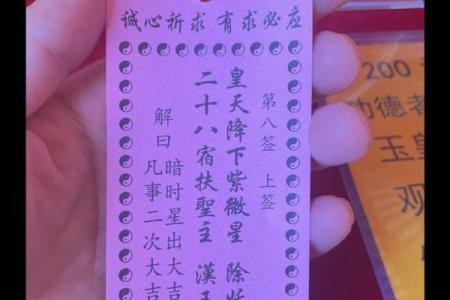 诚心祈求 有求必应
第八签 上签
皇天降下紫微星 除妖
二十八宿扶聖主 漢
解曰
暗时星出大吉
凡事二次大吉
200
功德者
玉皇
观